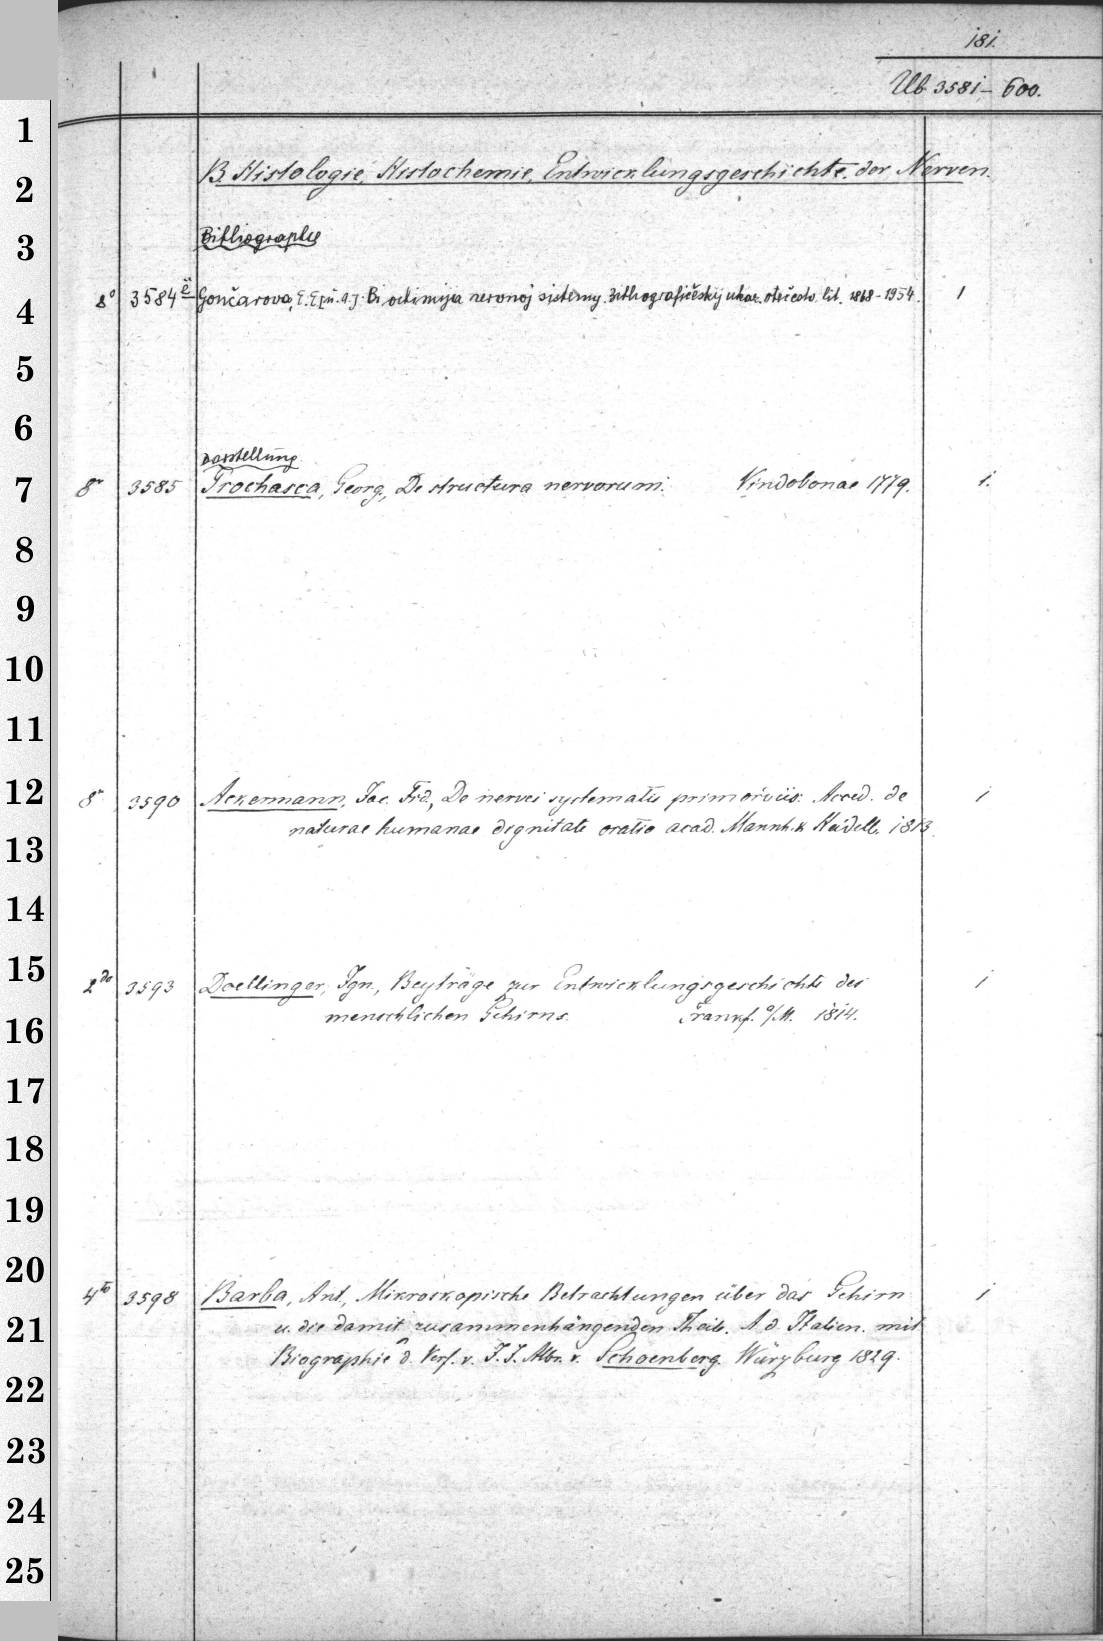 181.
Ub 3581–600.
B. Histologie, Histochemie, Entwicklungsgeschichte der Nerven.
Bibliographie
8° 3584 ë Gončarova, E. E. [u. a.]: Biochimija nervnoj sistemy. Bibliografičeskij ukaz. otečestv. lit. 1868–1954. 1
Darstellung
8° 3585 Prochasca, Georg, De structura nervorum. Vindobonae 1779. 1.
8° 3590 Ackermann, Jac. Frd, De nervei systematis primordiis. Acced. de 1
naturae humanae dignitate oratio acad. Mannh. & Heidelb. 1813.
2do 3593 Doellinger, Ign., Beyträge zur Entwicklungsgeschichte des 1
menschlichen Gehirns. Frankf. a/M. 1814.
4to 3598 Barba, Ant., Mikroskopische Betrachtungen über das Gehirn 1
u. die damit zusammenhängenden Theile. A. d. Italien. mit
Biographie d. Verf. v. J. J. Albr. v. Schoenberg. Würzburg 1829.
1
2
3
4
5
6
7
8
9
10
11
12
13
14
15
16
17
18
19
20
21
22
23
24
25